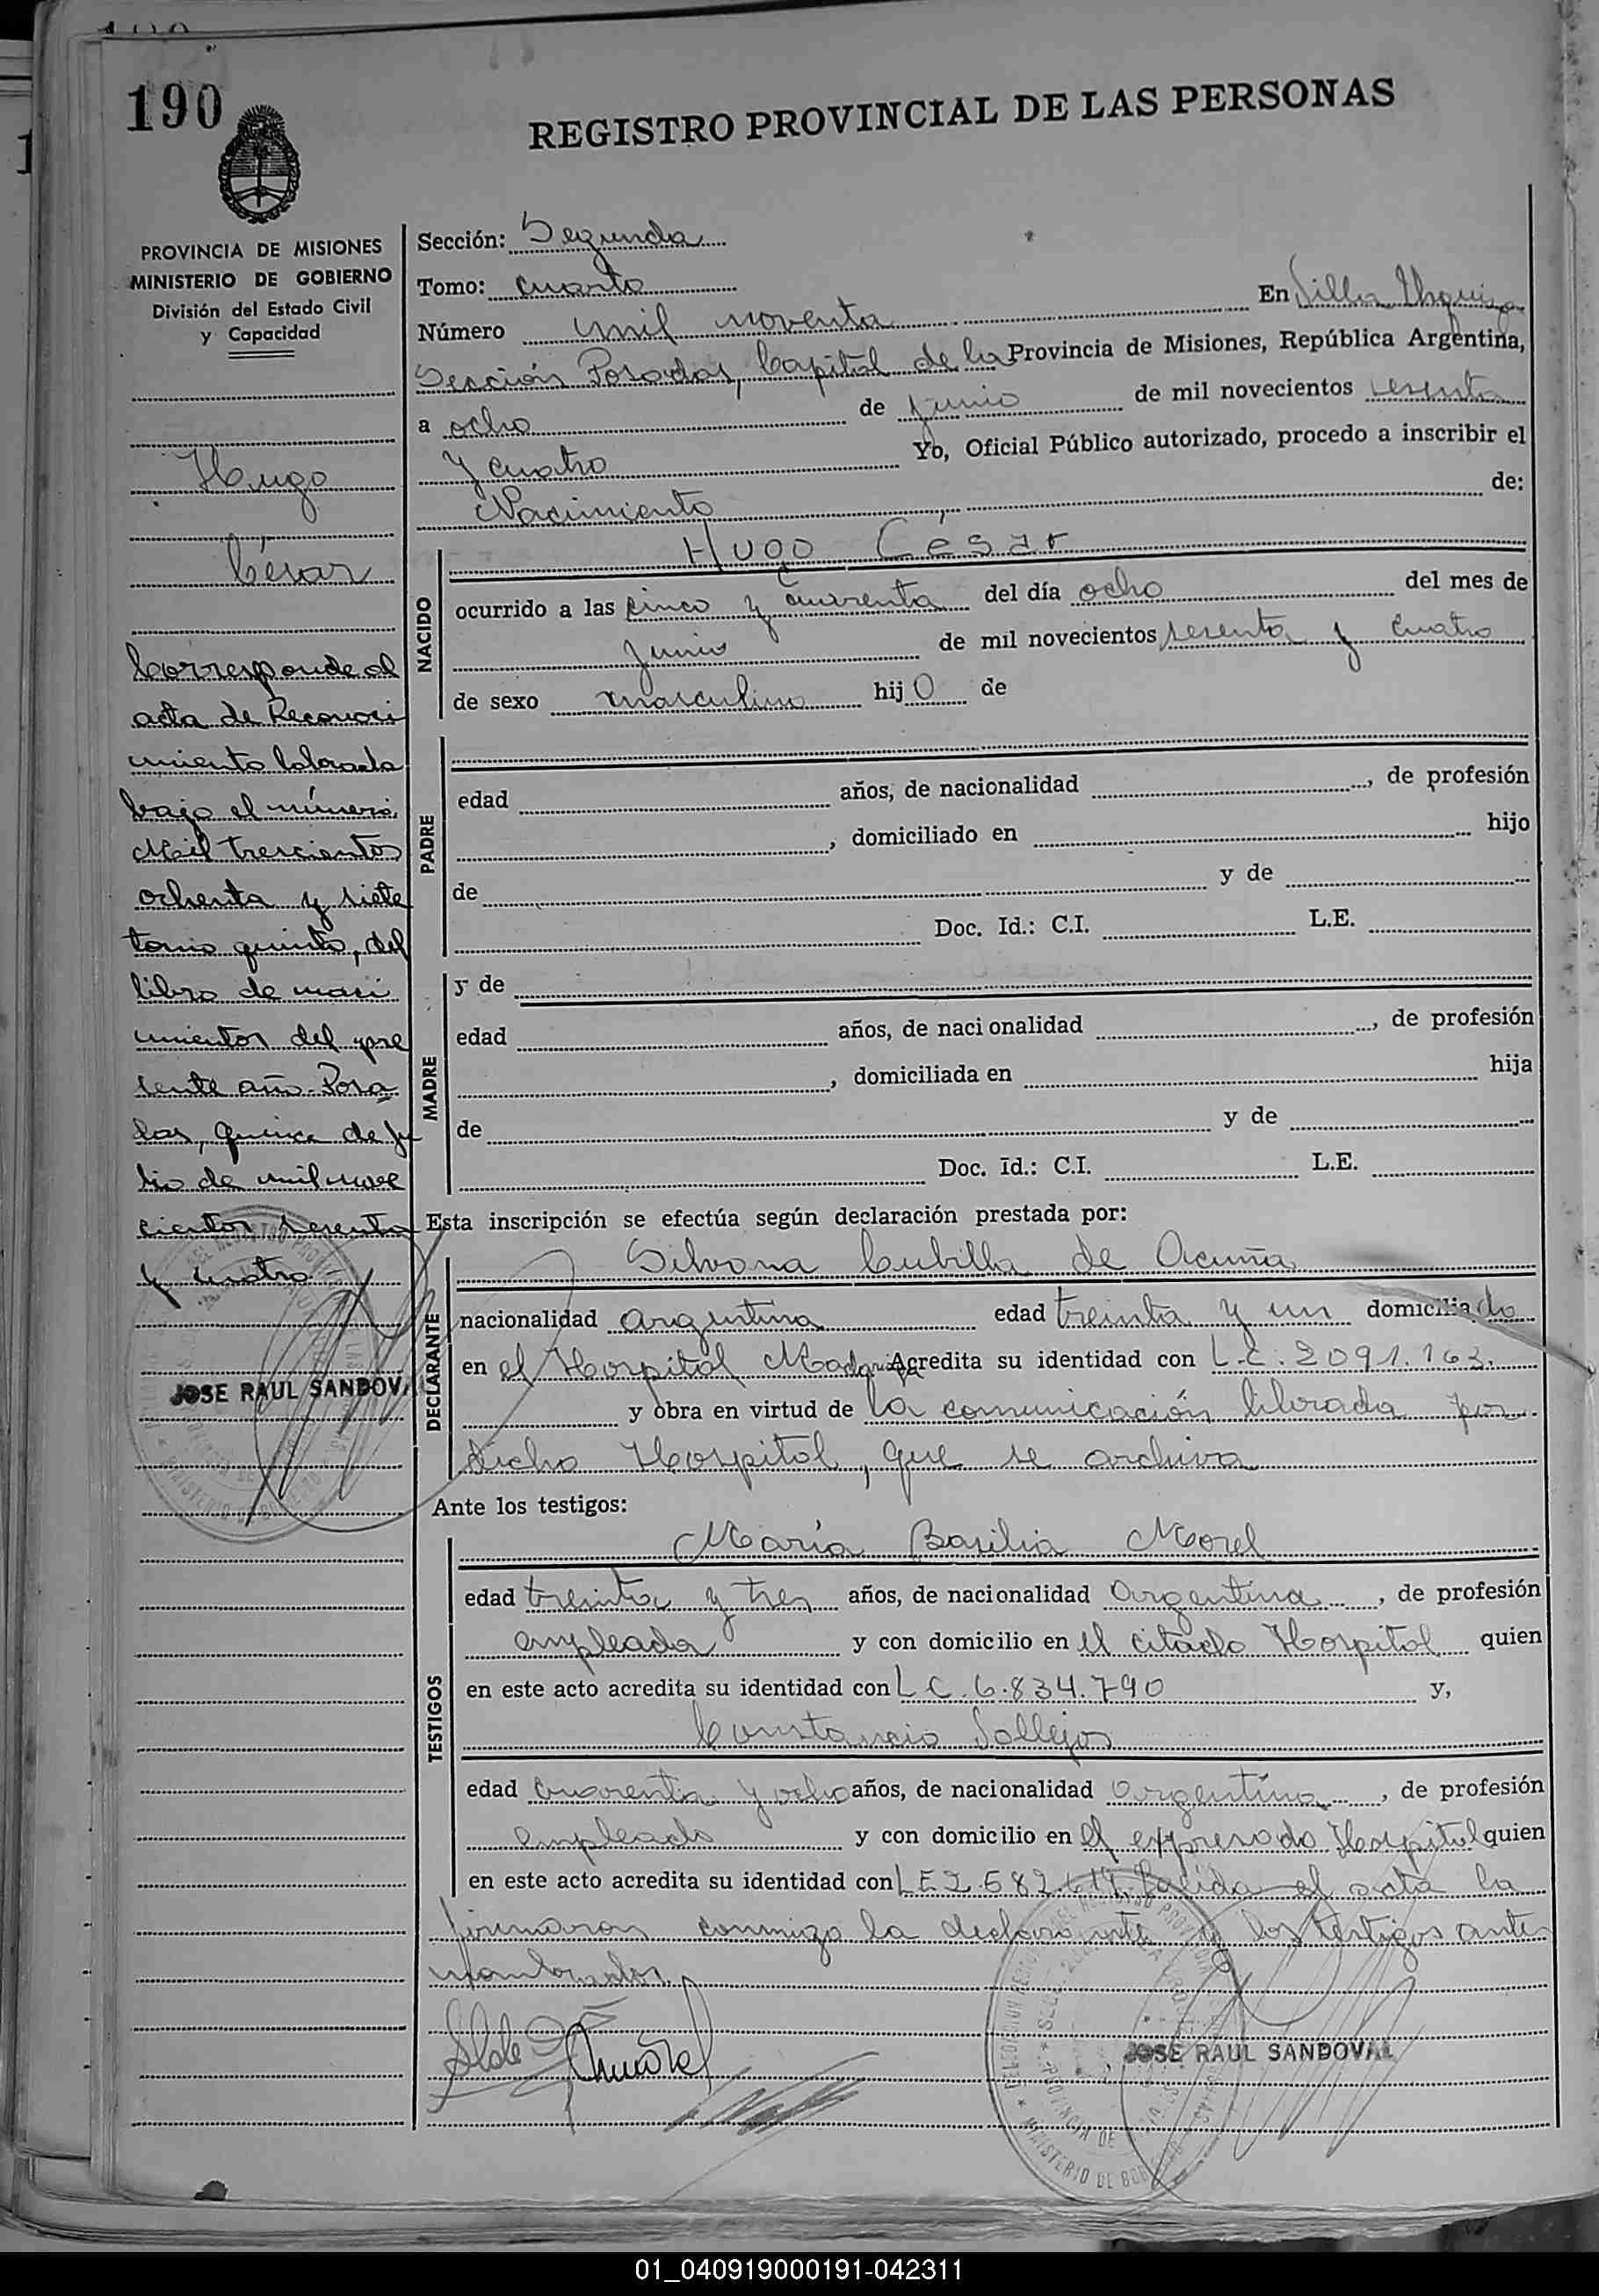 190
REGISTRO PROVINCIAL DE LAS PERSONAS
PROVINCIA DE MISIONES
MINISTERIO DE GOBIERNO
División del Estado Civil
y Capacidad
Hugo
César
Corresponde al
acta de Reconoci
miento labrada
bajo el número
Mil trescientos
ochenta y siete
tomo quinto, del
libro de naci
mientos del pre
sente año. Posa
das, quince de Ju
lio de mil nove
cientos sesenta
y cuatro
JOSE RAUL SANDOVAL
Sección: Segunda
Tomo: cuarto
Número mil noventa En Villa Urquiza
Sección Posadas, Capital de la Provincia de Misiones, República Argentina,
a ocho de junio de mil novecientos sesenta
y cuatro Yo, Oficial Público autorizado, procedo a inscribir el
Nacimiento de:
NACIDO
Hugo César
ocurrido a las cinco y cuarenta del día ocho del mes de
junio de mil novecientos sesenta y cuatro
de sexo masculino hijo de
PADRE
edad años, de nacionalidad , de profesión
, domiciliado en hijo
de y de
Doc. Id.: C.I. L.E.
MADRE
y de
edad años, de nacionalidad , de profesión
, domiciliada en hija
de y de
Doc. Id.: C.I. L.E.
Esta inscripción se efectúa según declaración prestada por:
DECLARANTE
Silvana Cubilla de Acuña
nacionalidad argentina edad treinta y un domiciliado
en el Hospital Madariaga Acredita su identidad con L.C. 2091.163.
y obra en virtud de la comunicación librada por
dicho Hospital, que se archiva
Ante los testigos:
TESTIGOS
María Basilia Morel
edad treinta y tres años, de nacionalidad Argentina , de profesión
empleada y con domicilio en el citado Hospital quien
en este acto acredita su identidad con L C. 6.834.790 y,
Constancio Vallejos
edad cuarenta y ocho años, de nacionalidad Argentina , de profesión
empleado y con domicilio en el expresado Hospital quien
en este acto acredita su identidad con L E el acta la
firmaron conmigo la declarante y los testigos ante
nombrados
JOSE RAUL SANDOVAL
01_040919000191-042311